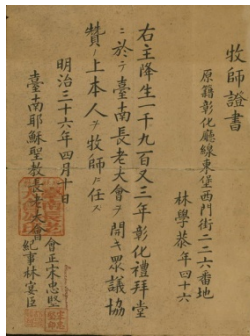 牧師證書
原籍彰化廳線東堡西門街二二六番地
林學恭 年四十六
右主降生一千九百又三年彰化禮拜堂
ニ於テ臺南長老大會ヲ開キ眾議協
贊ノ上本人ヲ牧師ニ任ズ
明治三十六年四月十日
臺南耶穌聖教長老大會
會正宋忠堅
紀事林宴臣